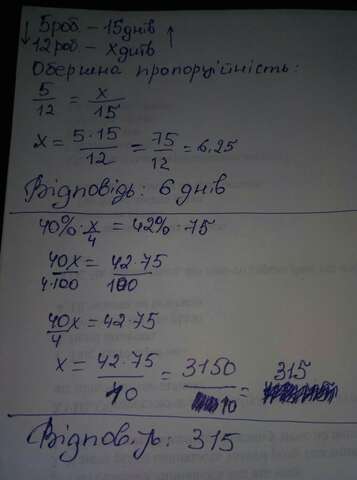 ↓ 5 роб. – 15 днів ↑
12 роб – x днів
Обернена пропорційність:
5/12 = x/15
x = 5·15/12 = 75/12 = 6,25
Відповідь: 6 днів
40% · x/4 = 42% · 75
40x/4·100 = 42·75/100
40/4 x = 42·75
x = 42·75/10 = 3150/10 = 315
Відповідь: 315